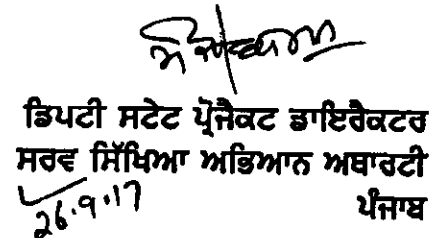 ਡਿਪਟੀ ਸਟੇਟ ਪ੍ਰੋਜੈਕਟ ਡਾਇਰੈਕਟਰ
ਸਰਵ ਸਿੱਖਿਆ ਅਭਿਆਨ ਅਥਾਰਟੀ
ਪੰਜਾਬ
26.9.17